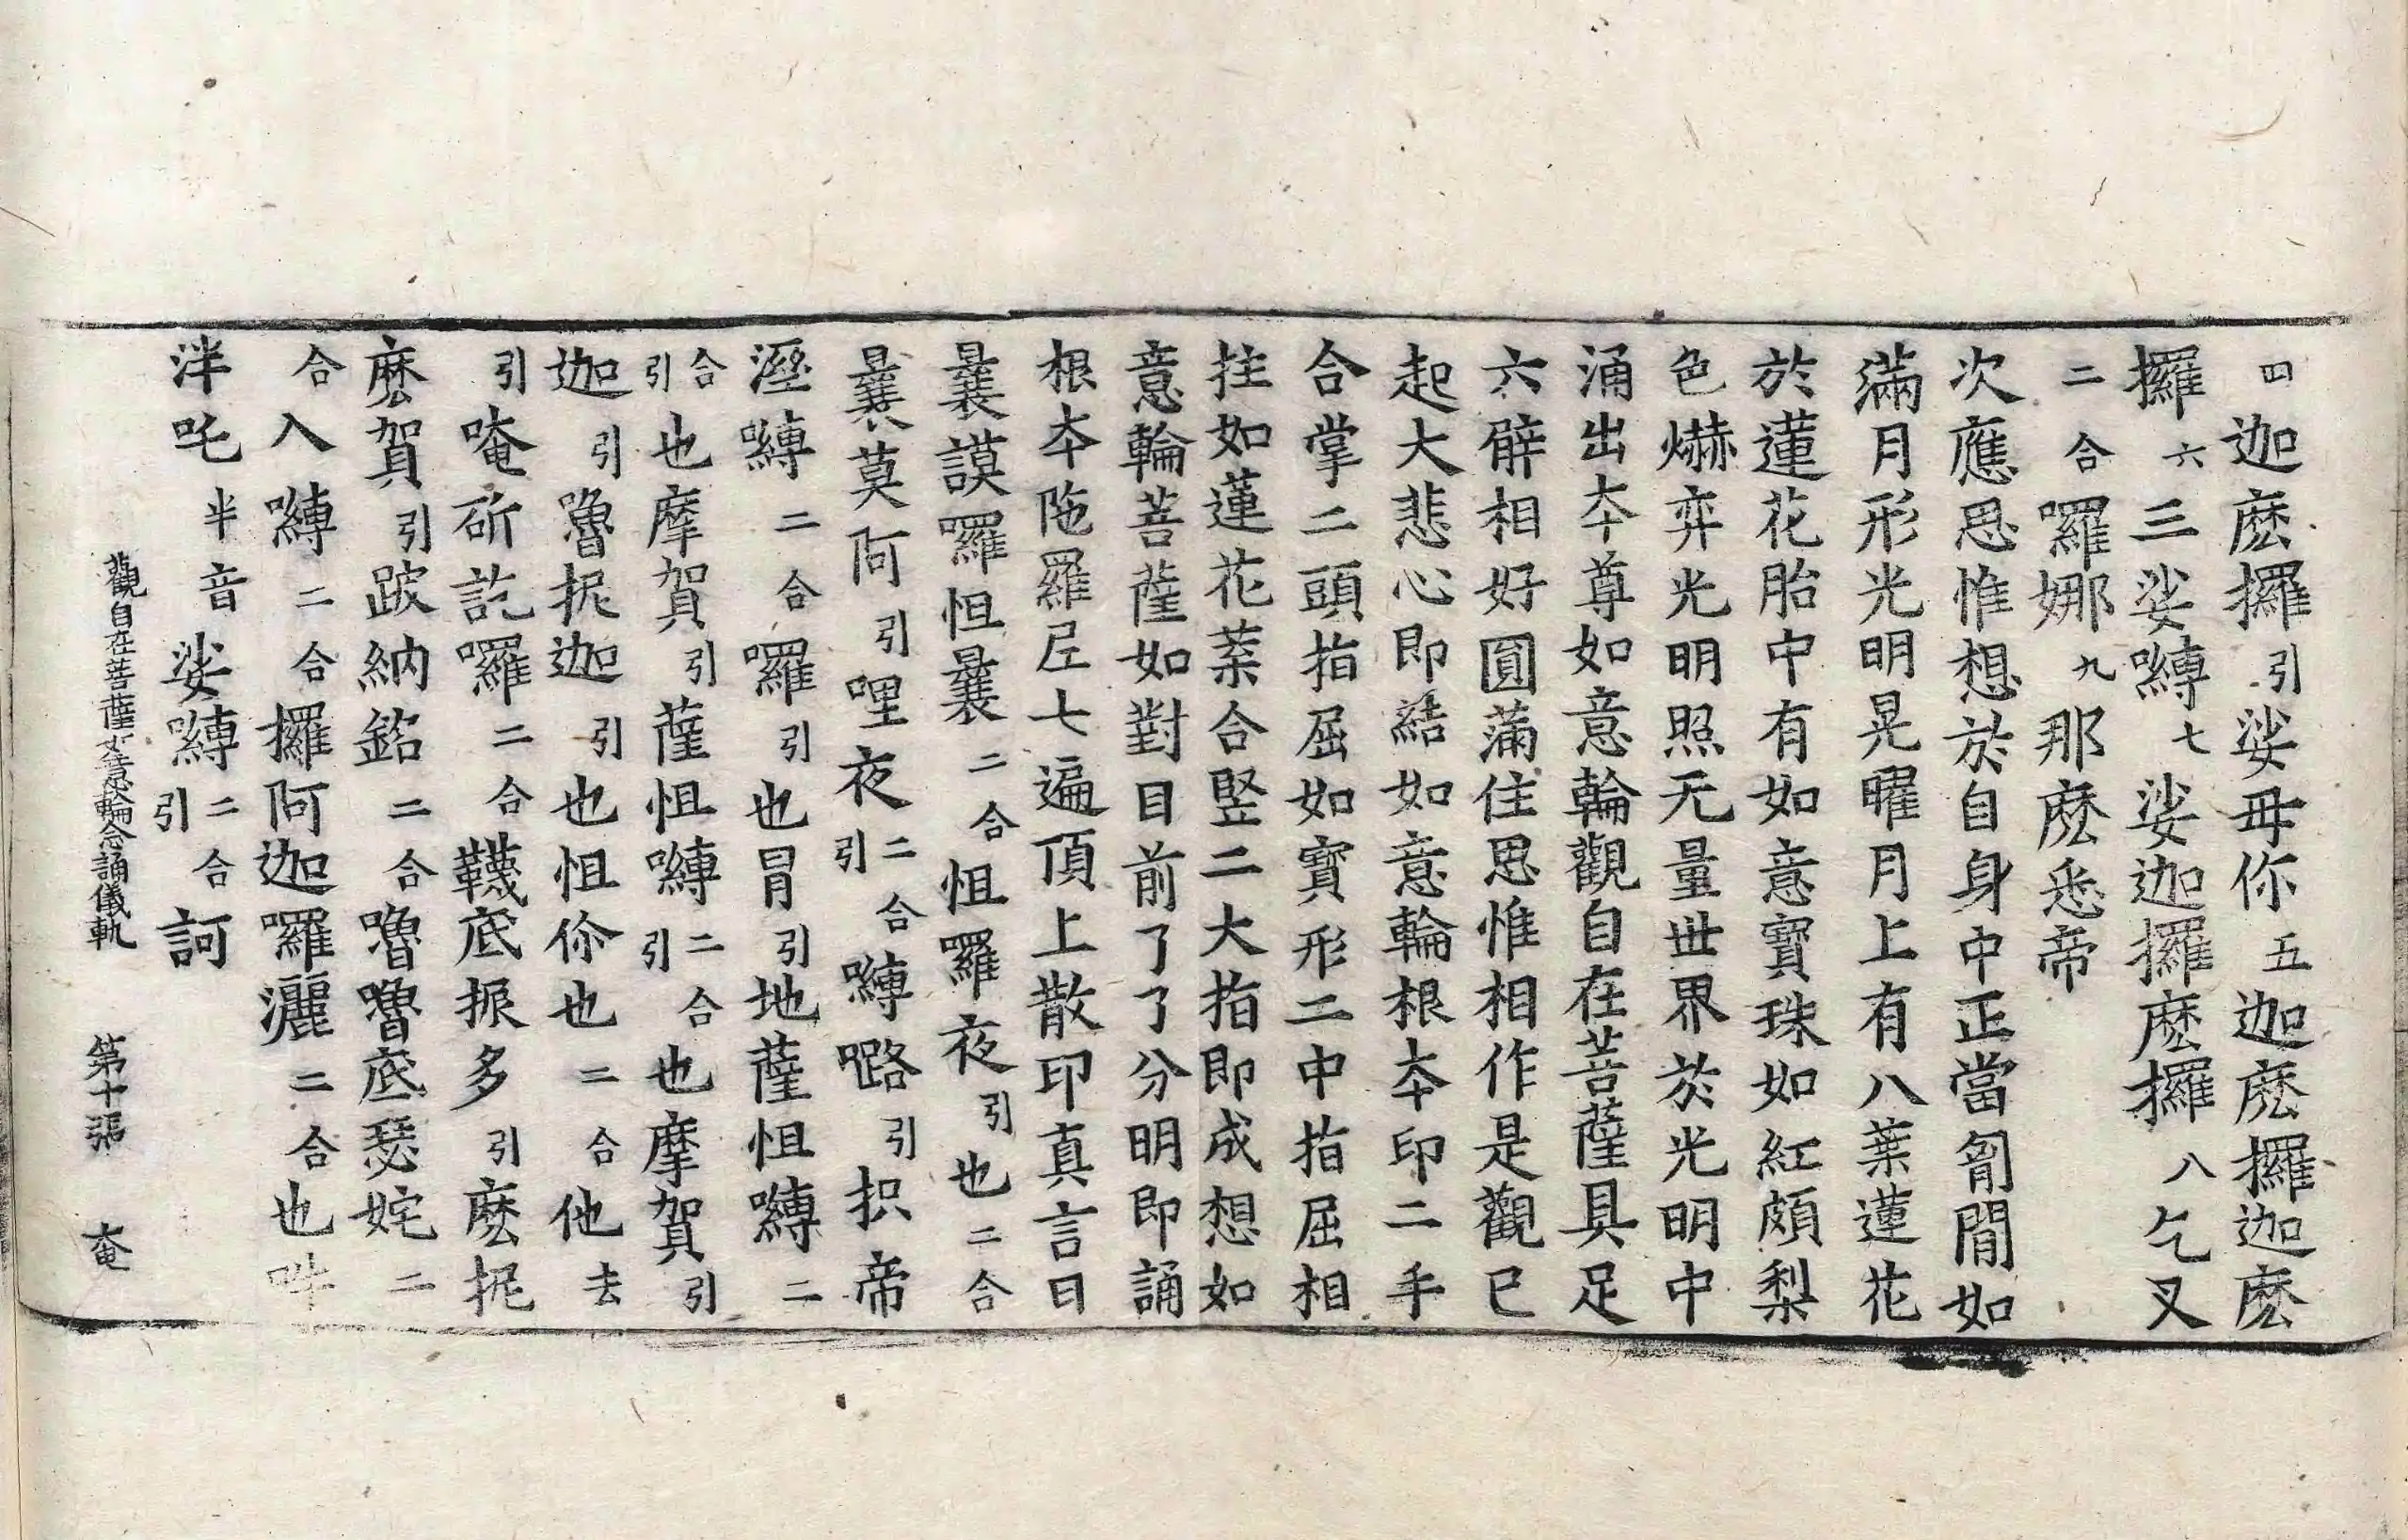 四迦麽攞引娑毋你五迦麽攞迦麽
攞六三娑嚩七娑迦攞麽攞八乞叉
二合囉娜九那麽悉帝
次應思惟想於自身中正當匈間如
滿月形光明晃曜月上有八葉蓮花
於蓮花胎中有如意寶珠如紅頗梨
色爀弈光明照无量世界於光明中
涌出夲尊如意輪觀自在菩薩具足
六臂相好圓蒲住思惟相作是觀已
起大悲心即結如意輪根夲印二手
合掌二頭指屈如寶形二中指屈相
拄如蓮花葉合竪二大指即成想如
意輪菩薩如對目前了了分明即誦
根夲陁羅尼七遍頂上散印真言曰
曩謨囉怛曩二合怛囉夜引也二合
曩莫阿引哩夜二合引嚩嚕引抧帝
溼嚩二合囉引也冒引地薩怛嚩二
合引也摩賀引薩怛嚩二合引也摩賀引
迦引嚕抳迦引也怛你也二合他去
引唵斫訖囉二合韈底振多引麽抳
麽賀引跛納銘二合嚕嚕底瑟姹二
合入嚩二合攞阿迦囉灑二合也吽
泮吒半音娑嚩二合引訶
觀自在菩薩如意輪念誦儀軌 第十張 奄